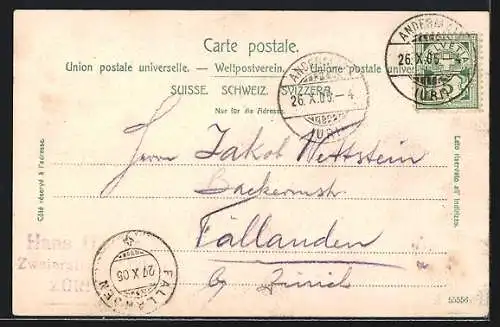 Carte postale.
Union postale universelle. — Weltpostverein. — Unione postale univer
SUISSE. SCHWEIZ. SVIZZERA.
Nur für die Adresse.
ANDERMATT
26.X.06.-4
(URI)
ANDERMATT
26.X.06.-4
(URI)
HELVETIA
5
Côté réservé à l'adresse.
Lato riservato all' indirizzo.
Herrn Jakob Wettstein
Bäckermstr
Fällanden
by Zürich
Hans
Zweierstr
ZÜRI
FÄLLANDEN
27.X.06
55556